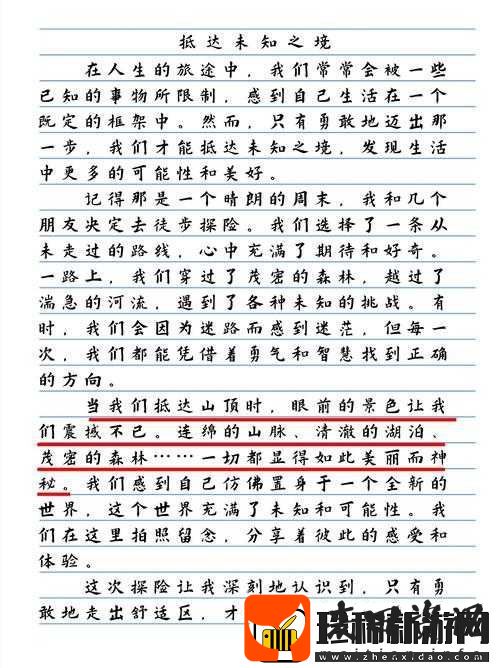 抵达未知之境
在人生的旅途中，我们常常会被一些
已知的事物所限制，感到自己生活在一个
既定的框架中。然而，只有勇敢地迈出那
一步，我们才能抵达未知之境，发现生活
中更多的可能性和美好。
记得那是一个晴朗的周末，我和几个
朋友决定去徒步探险。我们选择了一条从
未走过的路线，心中充满了期待和好奇。
一路上，我们穿过了茂密的森林，越过了
湍急的河流，遇到了各种未知的挑战。有
时，我们会因为迷路而感到迷茫，但每一
次，我们都能凭借着勇气和智慧找到正确
的方向。
当我们抵达山顶时，眼前的景色让我
们震撼不已。连绵的山脉、清澈的湖泊、
茂密的森林……一切都显得如此美丽而神
秘。我们感到自己仿佛置身于一个全新的
世界，这个世界充满了未知和可能性。我
们在这里拍照留念，分享着彼此的感受和
体验。
这次探险让我深刻地认识到，只有勇
敢地走出舒适区，才
www.zhenxidao.com